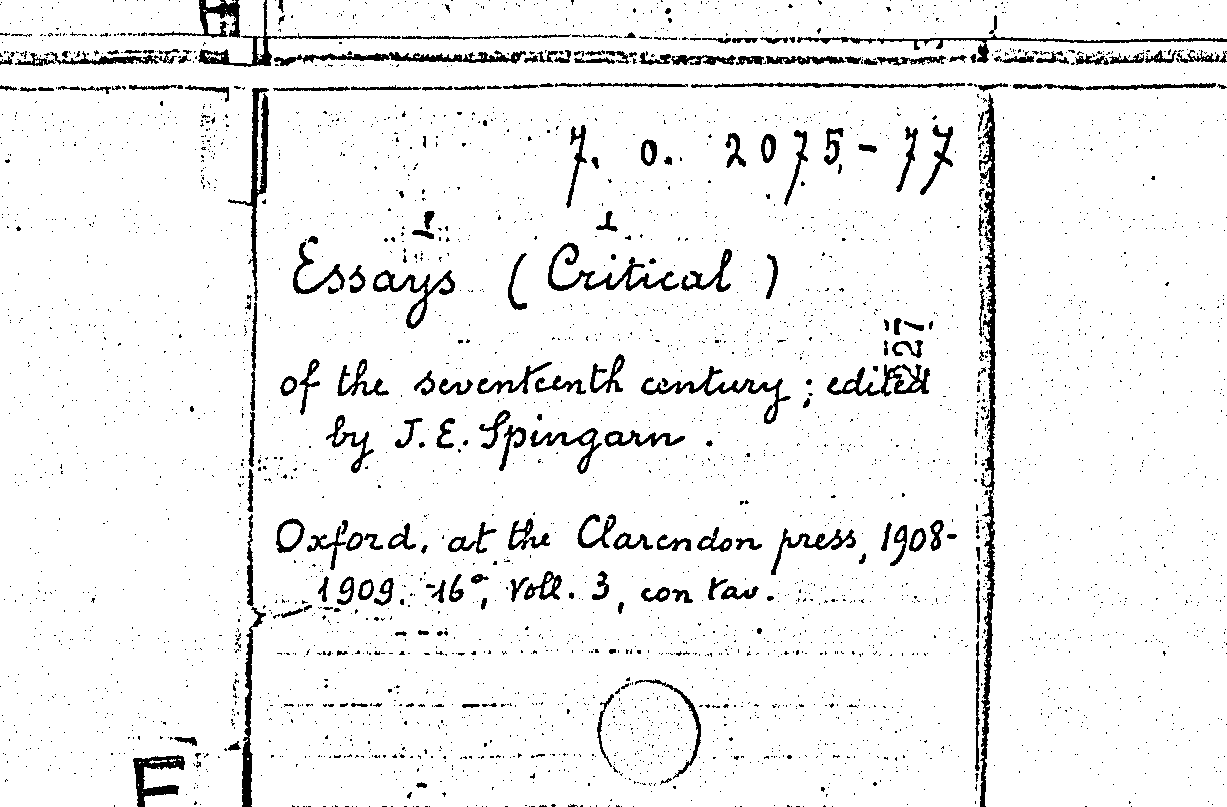 7. O. 2075-77
Essays (Critical)
of the seventeenth century; edited
by J. E. Spingarn.
Oxford, at the Clarendon press, 1908-
1909. -16°, Voll. 3, con tav.